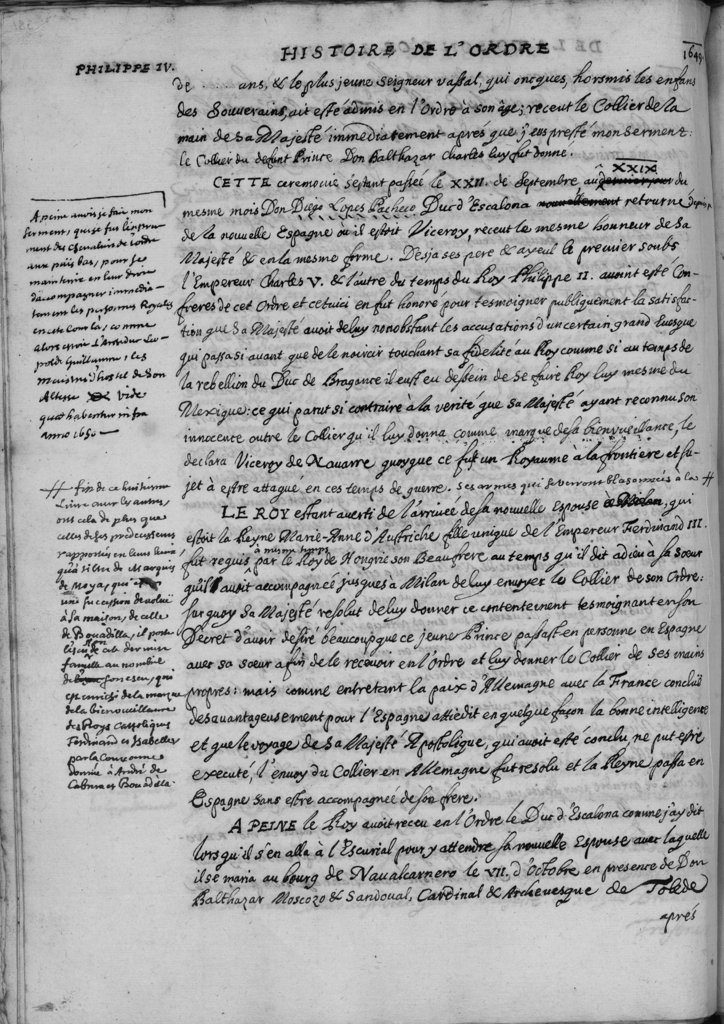 HISTOIRE DE L'ORDRE
1649
PHILIPPE IV.
de ..... ans, & le plus jeune Seigneur vassal, qui oncques, horsmis les enfans
des Souverains, ait esté admis en l'Ordre à son âge; receut le Collier de la
main de Sa Majesté immediatement apres que j'eus presté mon Serment:
le Collier du defunt Prince Don Balthazar Charles luy fut donné.
CETTE ceremonie s'estant passée le XXII. de Septembre, au XXIX du
mesme mois Don Diego Lopes Pacheco Duc d'Escalona nouvellement retourné depuis
de la nouvelle Espagne où il estoit Viceroy, receut le mesme honneur de Sa
Majesté & en la mesme forme. Desja ses pere & ayeul le premier soubs
l'Empereur Charles V. & l'autre du temps du Roy Philippe II. avoint esté Con-
freres de cet Ordre et cetuici en fut honoré pour tesmoigner publiquement la satisfac-
tion que Sa Majesté avoit de luy nonobstant les accusations d'un certain grand Evesque
qui passa si avant que de le noircir touchant sa fidelité au Roy comme si au temps de
la rebellion du Duc de Bragance il eust eu dessein de se faire Roy luy mesme du
Mexique: ce qui parut si contraire à la verité que Sa Majesté ayant reconnu son
innocence outre le Collier qu'il luy donna comme marque de sa bienveuillance, le
declara Viceroy de Navarre quoyque ce fut un Royaume à la frontiere et su-
jet à estre attaqué en ces temps de guerre. Ses armes qui se verront blasonnées à la #
LE ROY estant averti de l'arrivée de sa nouvelle Espouse à Milan, qui
estoit la Reyne Marie-Anne d'Austriche fille unique de l'Empereur Ferdinand III.
à mesme temps
fut requis par le Roy de Hongrie son Beaufrere au temps qu'il dit adieu à sa sœur
qu'il avoit accompagnée jusques à Milan de luy envoyer le Collier de son Ordre:
surquoy Sa Majesté resolut de luy donner ce contentement tesmoignant en son
Decret d'avoir desiré beaucoup que ce jeune Prince passast en personne en Espagne
avec sa sœur afin de le recevoir en l'Ordre et luy donner le Collier de ses mains
propres: mais comme entretant la paix d'Allemagne avec la France conclüe
desavantageusement pour l'Espagne attiedit en quelque façon la bonne intelligence
et que le voyage de Sa Majesté Apostolique, qui avoit esté conclu ne put estre
executé, l'envoy du Collier en Allemagne fut resolu et la Reyne passa en
Espagne sans estre accompagnée de son frere.
A PEINE le Roy avoit receu en l'Ordre le Duc d'Escalona comme j'ay dit
lors qu'il s'en alla à l'Escurial pour y attendre sa nouvelle Espouse avec laquelle
il se maria au bourg de Navalcarnero le VII. d'Octobre en presence de Don
Balthazar Moscozo & Sandoual, Cardinal & Archevesque de Tolede
aprés
A peine avois je fait mon
Serment, que je fus l'instru-
ment des Chevaliers de l'ordre
aux païs bas, pour les
maintenir en leur droit
d'accompagner immedia-
tement les personnes Royales
en cette Cour la, comme
alors estoit l'Archiduc Leo-
pold Guillaume, & les
maistres d'hostel de Son
Altesse Vide
quae habentur infra
anno 1650
# fin de ce huitieme
Livre avec les autres,
ont cela de plus que
celles de ses predecesseurs
rapportées en leurs lieux
qu'à tiltre de Marquis
de Moya, qui
une succession devoluë
à sa maison, de celle
de Bouadilla, il porte
l'escu de cete derniere
famille au nombile
de son escu, qui
est enrichi de la marque
de la bienveuillance
des Roys Catholiques
Ferdinand et Isabelle
par la Couronne
donnée à André de
Cabrera et Bouadilla